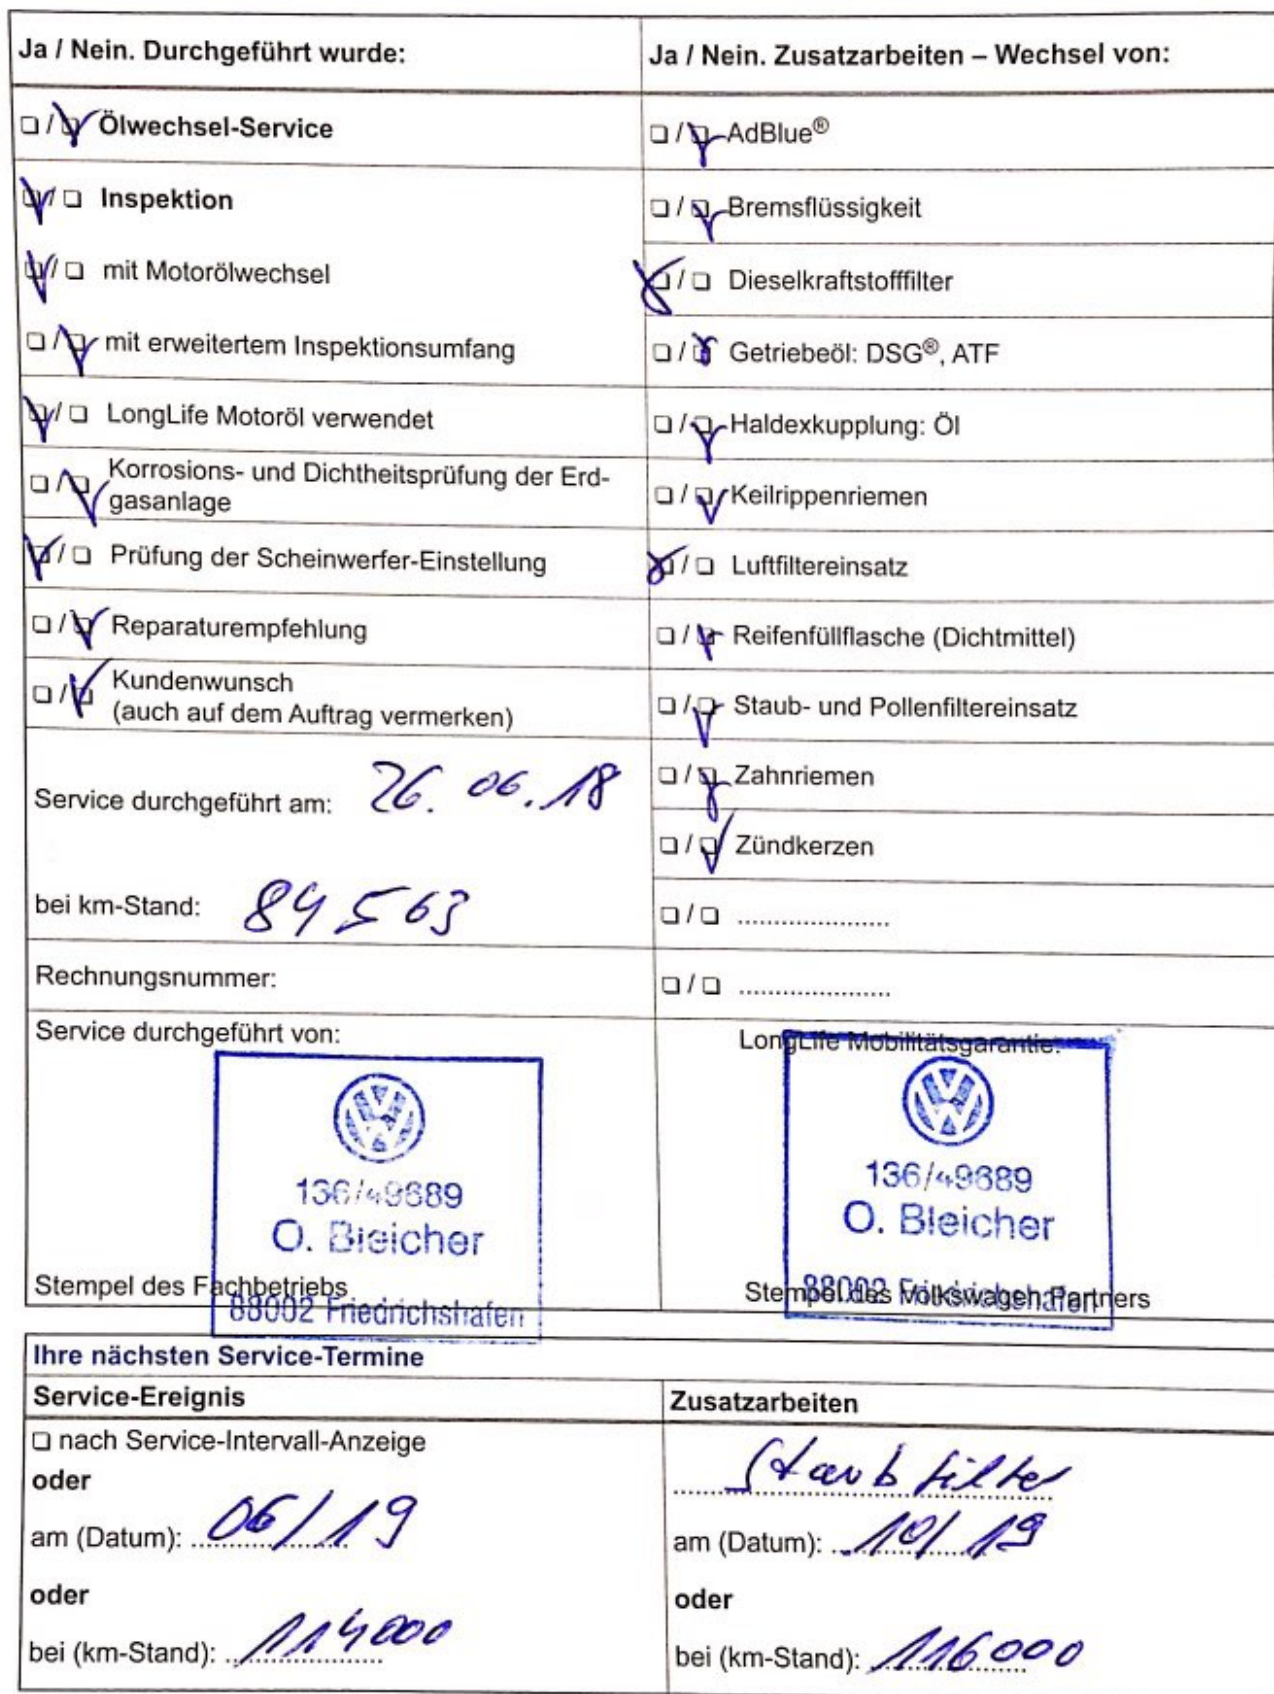 Ja / Nein. Durchgeführt wurde:
❏ / ❏ Ölwechsel-Service
❏ / ❏ Inspektion
❏ / ❏ mit Motorölwechsel
❏ / ❏ mit erweitertem Inspektionsumfang
❏ / ❏ LongLife Motoröl verwendet
❏ / ❏ Korrosions- und Dichtheitsprüfung der Erd-
gasanlage
❏ / ❏ Prüfung der Scheinwerfer-Einstellung
❏ / ❏ Reparaturempfehlung
❏ / ❏ Kundenwunsch
(auch auf dem Auftrag vermerken)
Service durchgeführt am: 26.06.18
bei km-Stand: 84563
Rechnungsnummer:
Service durchgeführt von:
136/49689
O. Bleicher
Stempel des Fachbetriebs
88002 Friedrichshafen
Ja / Nein. Zusatzarbeiten – Wechsel von:
❏ / ❏ AdBlue®
❏ / ❏ Bremsflüssigkeit
❏ / ❏ Dieselkraftstofffilter
❏ / ❏ Getriebeöl: DSG®, ATF
❏ / ❏ Haldexkupplung: Öl
❏ / ❏ Keilrippenriemen
❏ / ❏ Luftfiltereinsatz
❏ / ❏ Reifenfüllflasche (Dichtmittel)
❏ / ❏ Staub- und Pollenfiltereinsatz
❏ / ❏ Zahnriemen
❏ / ❏ Zündkerzen
❏ / ❏ ......................
❏ / ❏ ......................
LongLife Mobilitätsgarantie:
136/49689
O. Bleicher
88002 Friedrichshafen
Stempel des Volkswagen Partners
Ihre nächsten Service-Termine
Service-Ereignis
❏ nach Service-Intervall-Anzeige
oder
am (Datum): 06/19
oder
bei (km-Stand): 114000
Zusatzarbeiten
Staubfilter
am (Datum): 10/19
oder
bei (km-Stand): 116000